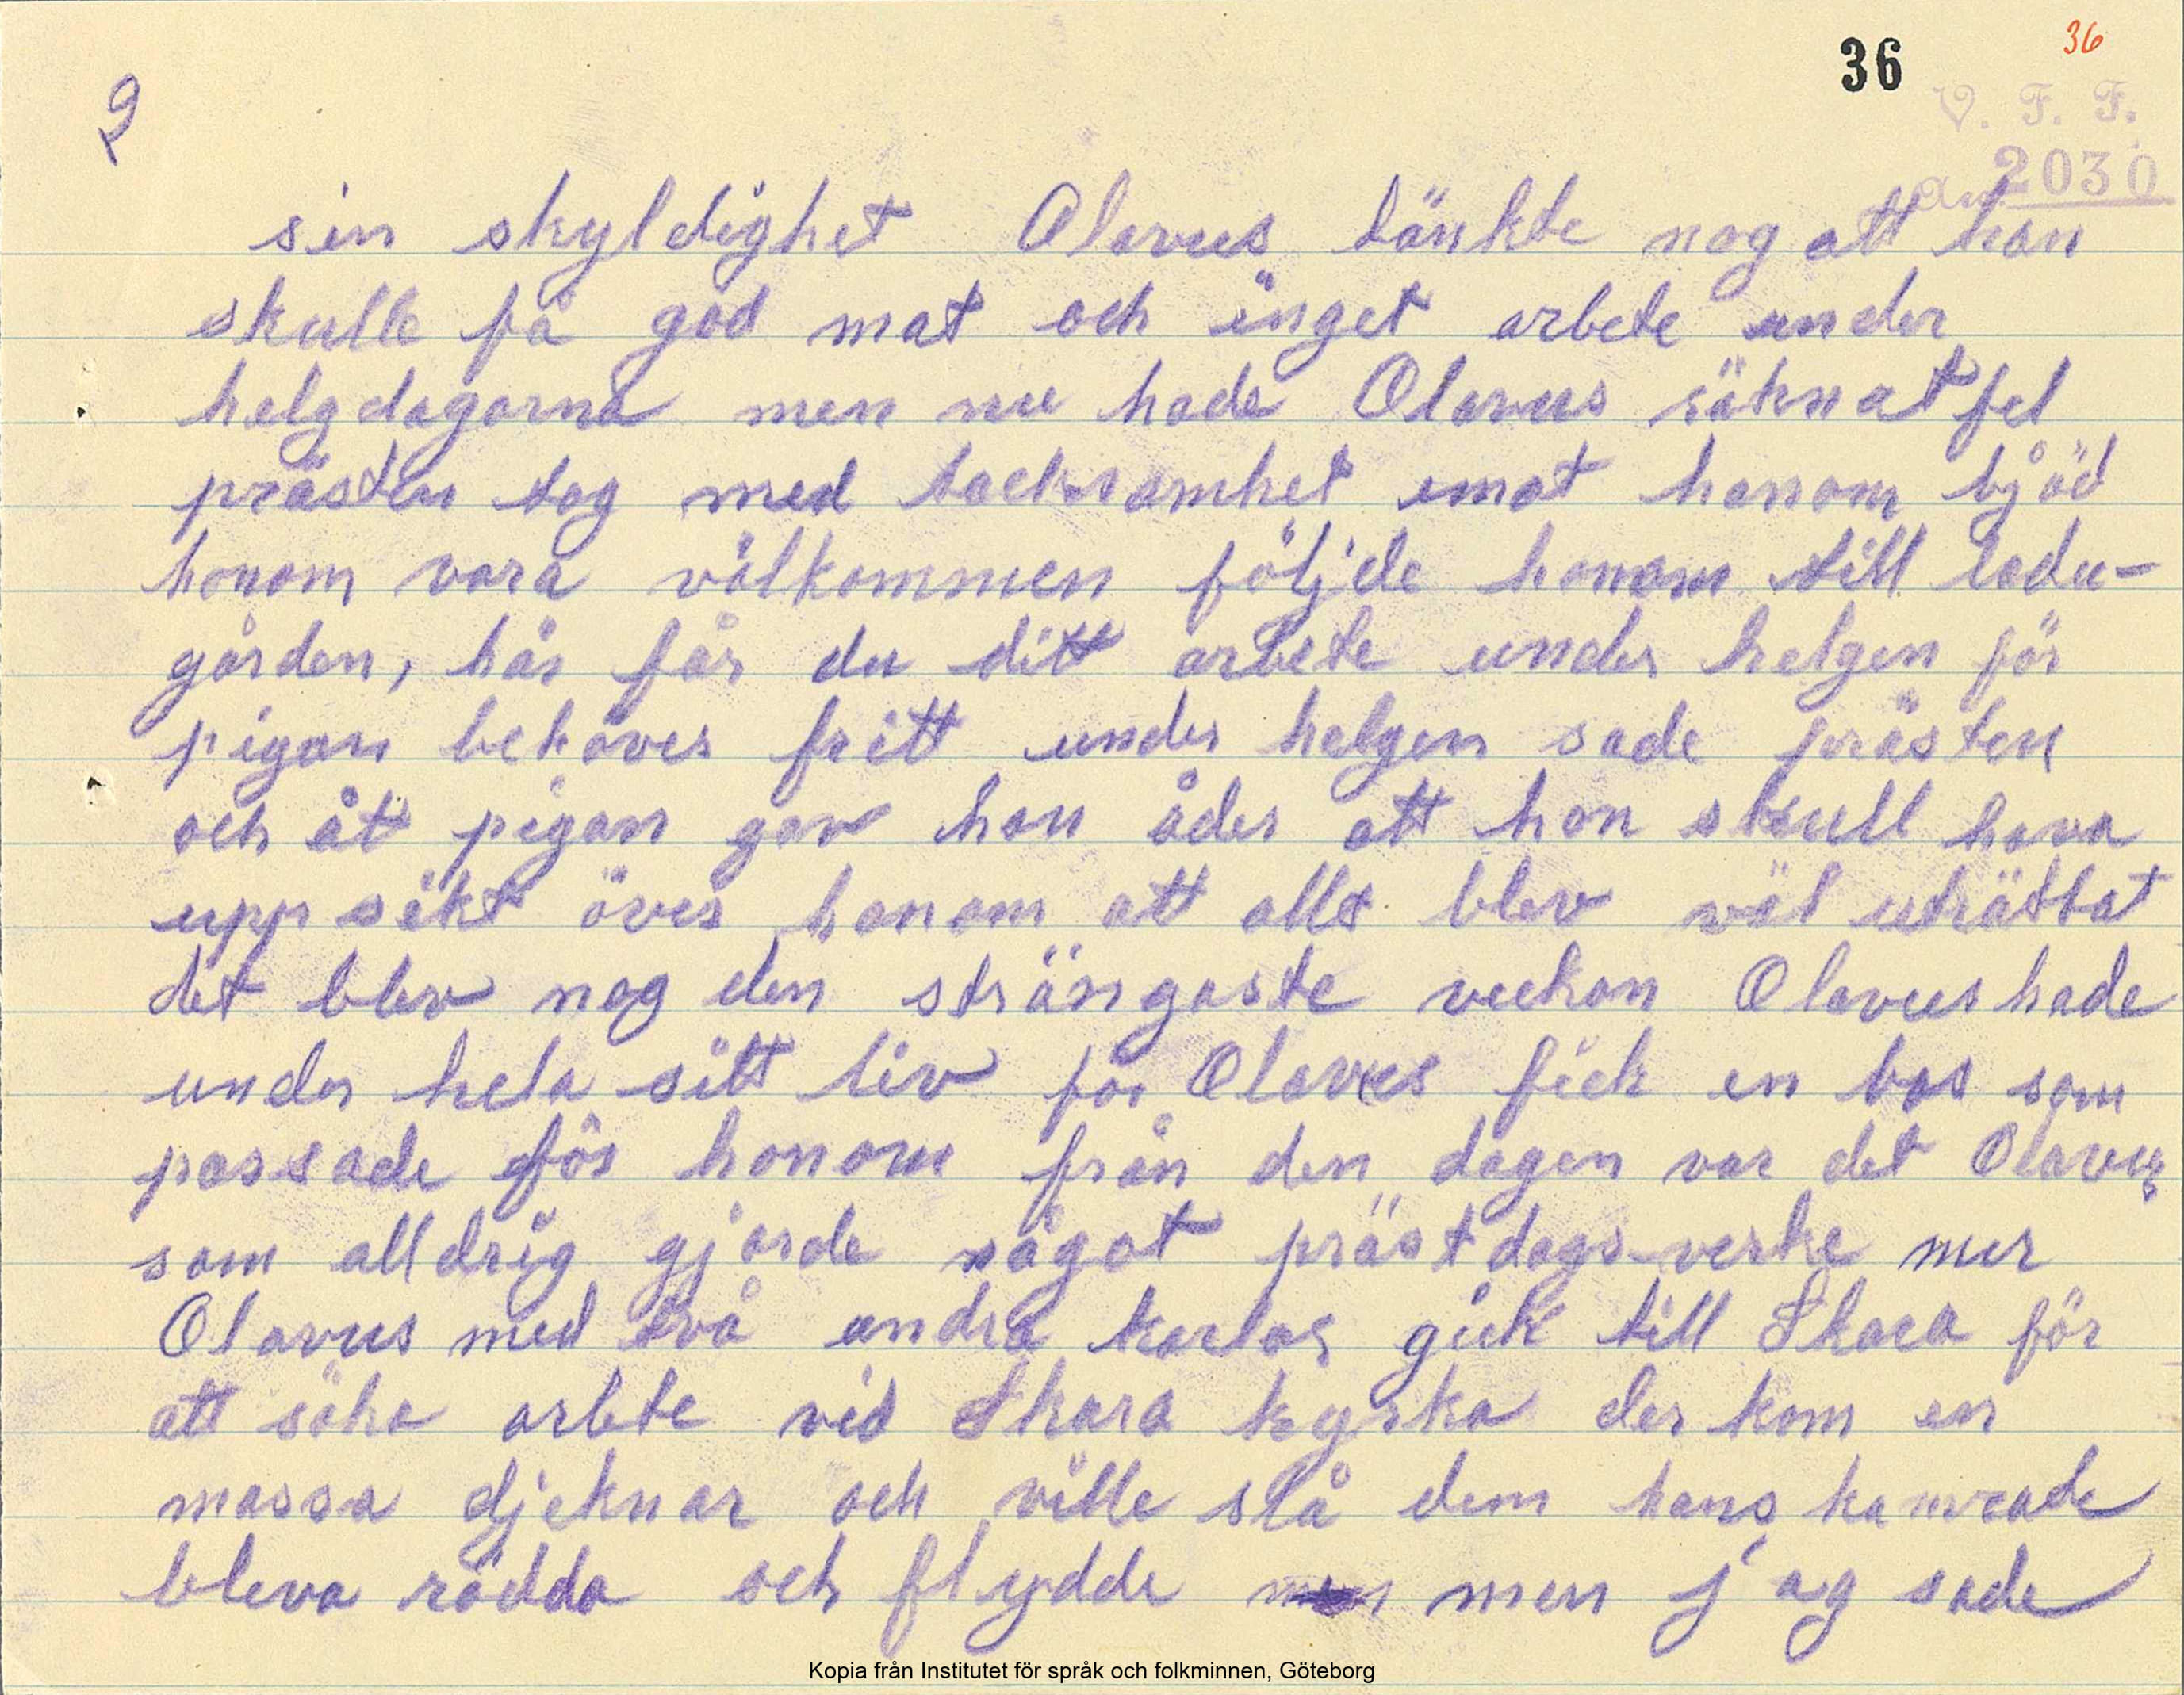 36
36
V. F. F.
2030
9
sin skyldighet Olavus tänkte nog att han
skulle få god mat och inget arbete under
helgdagarna men nu hade Olavus räknat fel
prästen tog med tacksamhet emot honom bjöd
honom vara välkommen följde honom till ladu-
gården, här får du ditt arbete under helgen för
pigan behöves fritt under helgen sade prästen
och åt pigan gav han åder att hon skull hava
uppsikt över honom att allt blev väl uträttat
det blev nog den strängaste veckan Olavus hade
under hela sitt liv för Olavus fick en bas som
passade för honom från den dagen var det Olavus
som alldrig gjorde något prästdags-verke mer
Olavus med två andra karlar gick till Skara för
att söka arbete vid Skara kyrka der kom en
massa djeknar och ville slå dem hans kamrade
bleva rädda och flydde men jag sade
Kopia från Institutet för språk och folkminnen, Göteborg